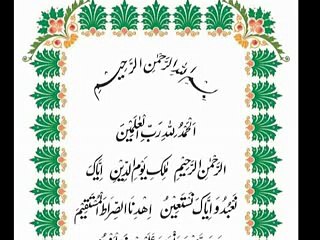 بسم الله الرحمن الرحیم
الحمد لله رب العلمین
الرحمن الرحیم ملک یوم الدین ایاک
نعبد و ایاک نستعین اهدنا الصراط المستقیم